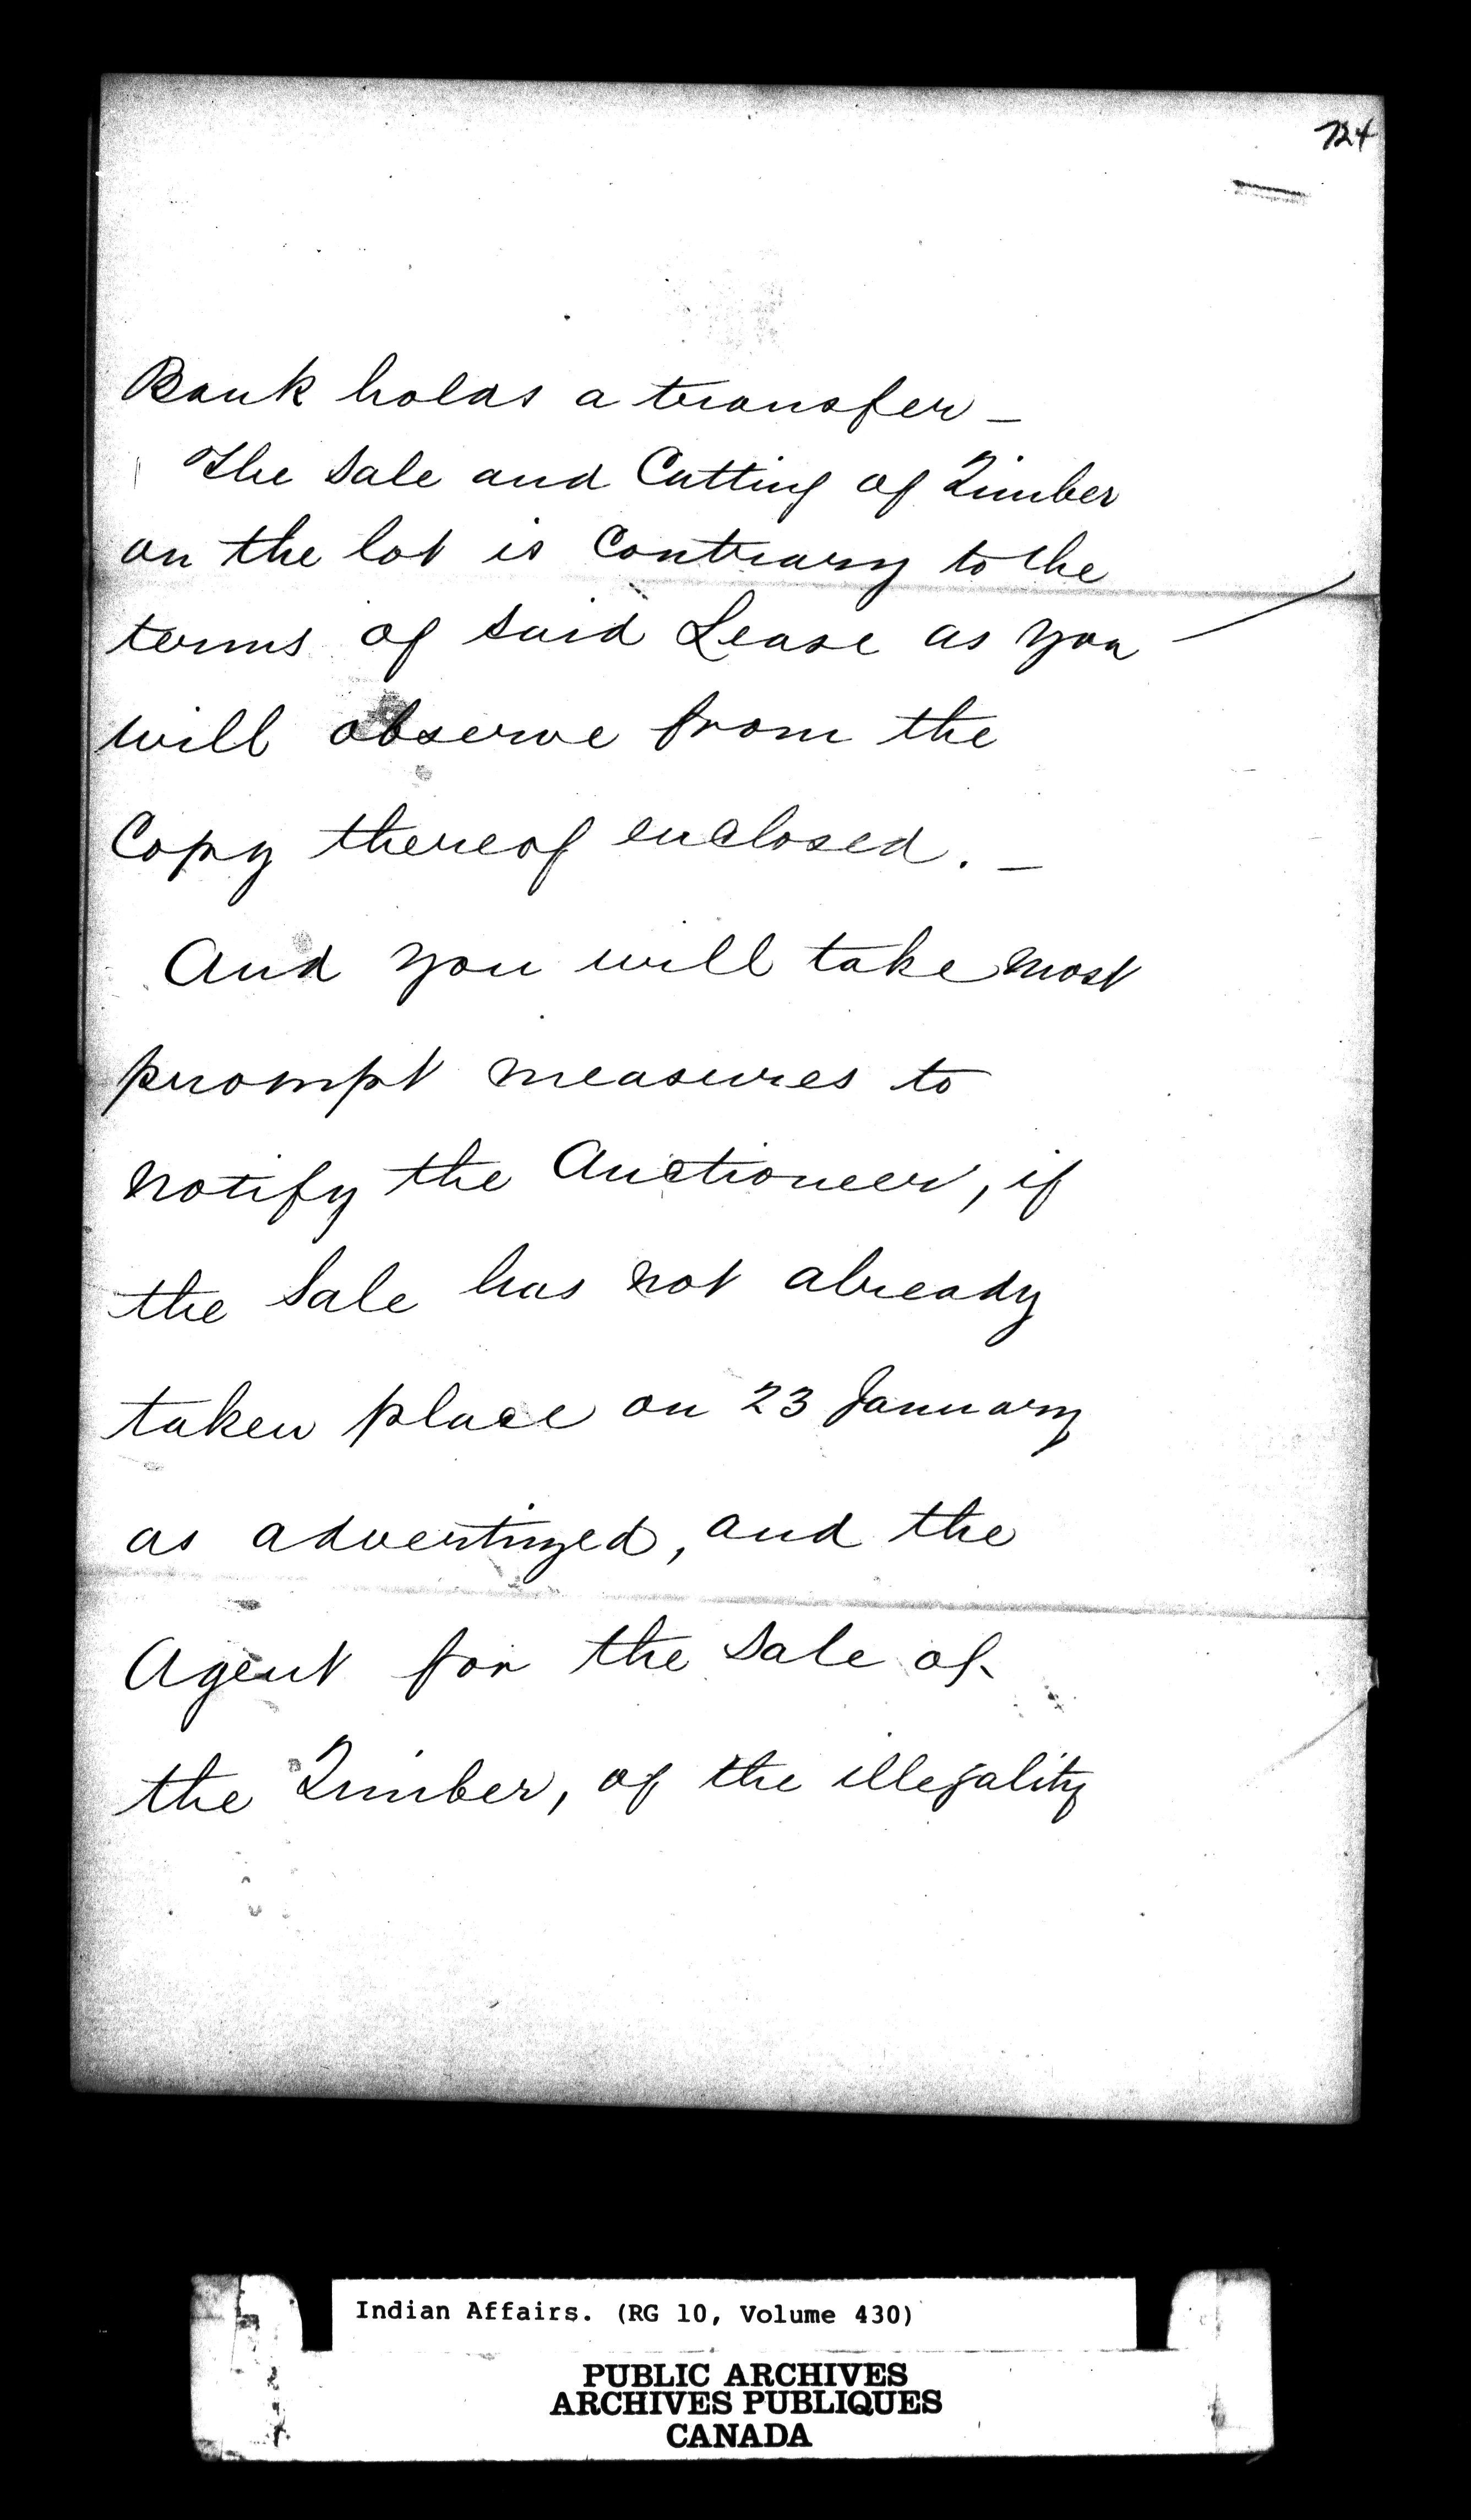 724
Bank holds a transfer _
The Sale and Cutting of Timber
on the lot is Contrary to the
terms of said Lease as you
will observe from the
Copy thereof enclosed. _
And you will take most
prompt measures to
notify the Auctioneer, if
the Sale has not already
taken place on 23 January
as advertized, and the
Agent for the Sale of
the Timber, of the illegality
Indian Affairs. (RG 10, Volume 430)
PUBLIC ARCHIVES
ARCHIVES PUBLIQUES
CANADA